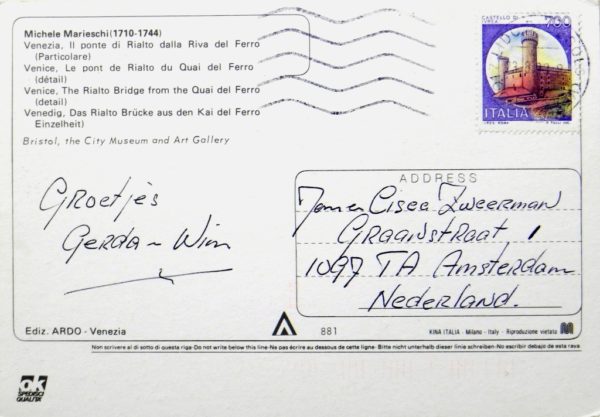 Michele Marieschi (1710-1744)
Venezia, Il ponte di Rialto dalla Riva del Ferro
(Particolare)
Venice, Le pont de Rialto du Quai del Ferro
(détail)
Venice, The Rialto Bridge from the Quai del Ferro
(detail)
Venedig, Das Rialto Brücke aus den Kai del Ferro
Einzelheit)
Bristol, the City Museum and Art Gallery
CASTELLO DI
IVREA
700
ITALIA
Groetjes
Gerda - Wim
ADDRESS
Zweerman
Graanstraat 1
1097 TA Amsterdam
Nederland.
Ediz. ARDO - Venezia
881
KINA ITALIA - Milano - Italy - Riproduzione vietata
Non scrivere al di sotto di questa riga-Do not write below this line-Ne pas écrire au dessous de cette ligne- Bitte nicht unterhalb dieser linie schreiben-No escribir debajo de esta raya
ok
SPEDISCI
QUALITA'